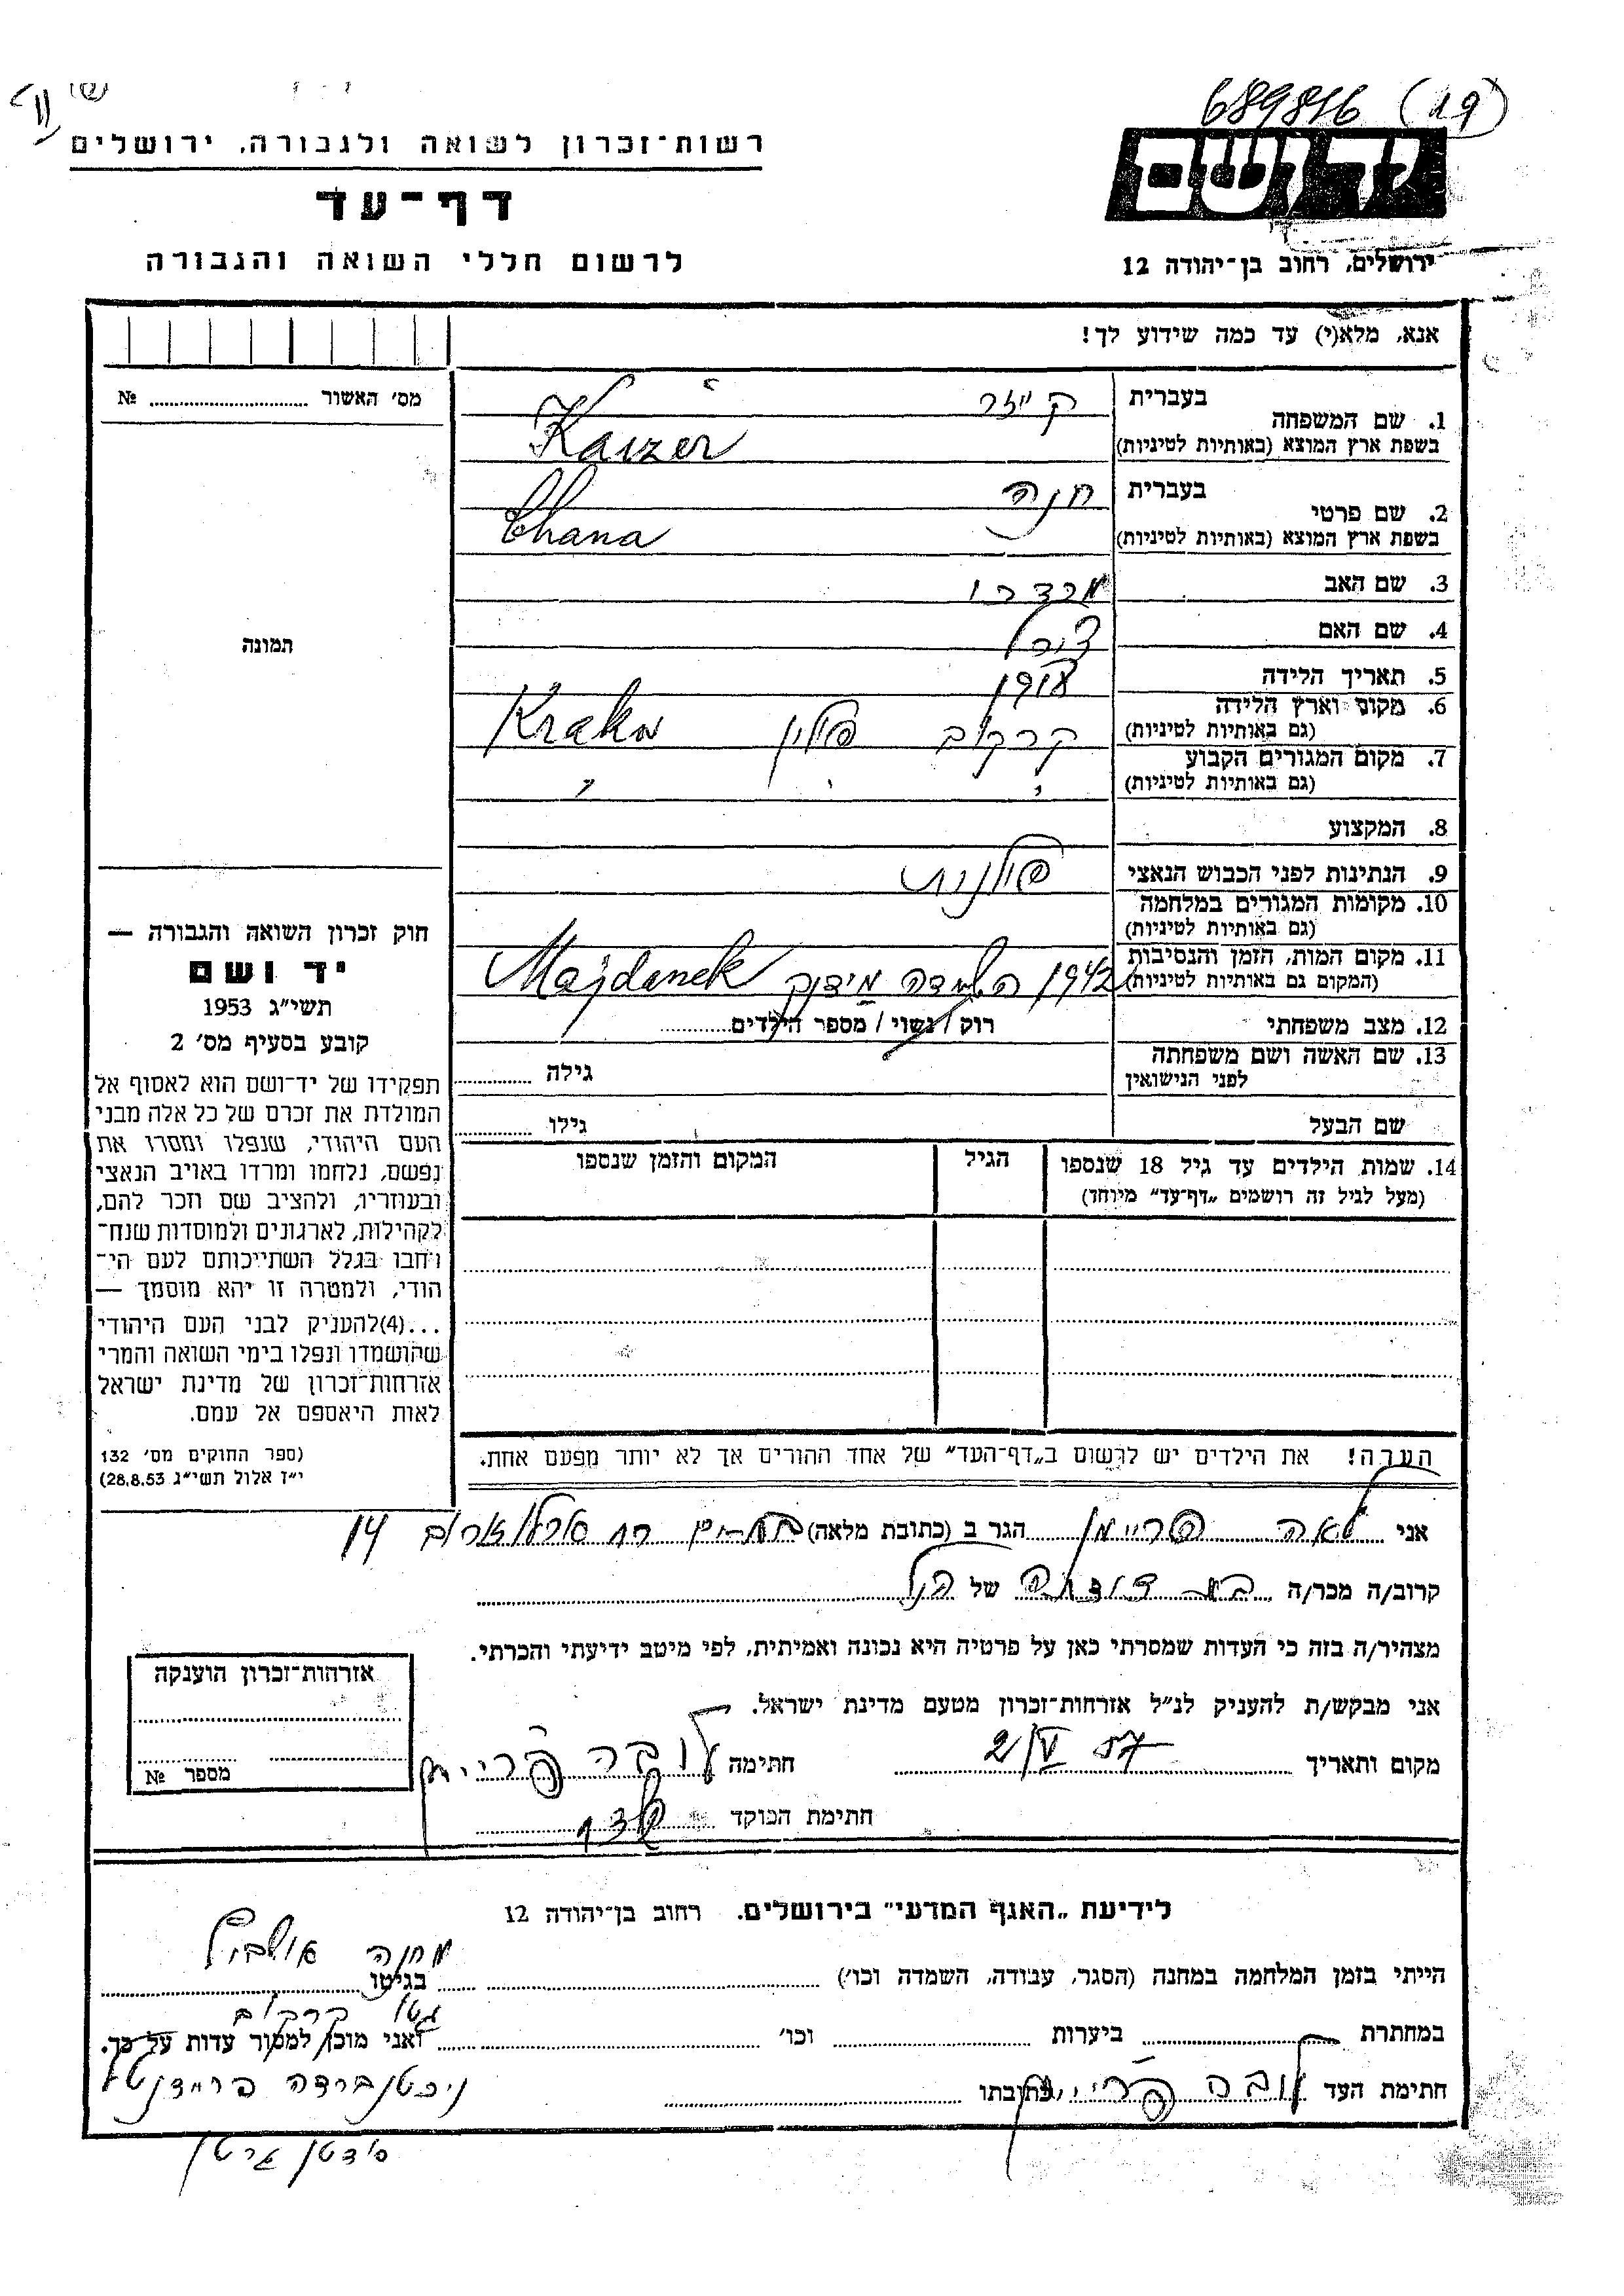 689816 (19)
רשות־זכרון לשואה ולגבורה, ירושלים
יד ושם
דף־עד
לרשום חללי השואה והגבורה
ירושלים, רחוב בן־יהודה 12
אנא, מלא(י) עד כמה שידוע לך!
מס׳ האשור № 
תמונה
1. שם המשפחה בעברית קייזר
בשפת ארץ המוצא (באותיות לטיניות) Kaizer
2. שם פרטי בעברית חנה
בשפת ארץ המוצא (באותיות לטיניות) Chana
3. שם האב מרדכי
4. שם האם
5. תאריך הלידה
6. מקום וארץ הלידה (גם באותיות לטיניות) קרקוב פולין Krakow
7. מקום המגורים הקבוע (גם באותיות לטיניות) " " "
8. המקצוע
9. הנתינות לפני הכבוש הנאצי פולנית
10. מקומות המגורים במלחמה (גם באותיות לטיניות)
11. מקום המות, הזמן והנסיבות (המקום גם באותיות לטיניות) 1942 השמדה מידנק Majdanek
12. מצב משפחתי רוק / נשוי / מספר הילדים
13. שם האשה ושם משפחתה לפני הנישואין גילה
שם הבעל גילו
14. שמות הילדים עד גיל 18 שנספו הגיל המקום והזמן שנספו
(מעל לגיל זה רושמים „דף־עד״ מיוחד)
חוק זכרון השואה והגבורה —
יד ושם
תשי״ג 1953
קובע בסעיף מס׳ 2
תפקידו של יד־ושם הוא לאסוף אל
המולדת את זכרם של כל אלה מבני
העם היהודי, שנפלו ומסרו את
נפשם, נלחמו ומרדו באויב הנאצי
ובעוזריו, ולהציב שם וזכר להם,
לקהילות, לארגונים ולמוסדות שנח־
רחבו בגלל השתייכותם לעם הי־
הודי, ולמטרה זו יהא מוסמך —
...(4)להעניק לבני העם היהודי
שהושמדו ונפלו בימי השואה והמרי
אזרחות־זכרון של מדינת ישראל
לאות היאספם אל עמם.
(ספר החוקים מס׳ 132
י״ז אלול תשי״ג 28.8.53)
הערה! את הילדים יש לרשום ב„דף־העד״ של אחד ההורים אך לא יותר מפעם אחת.
אני לאה פריימן הגר ב (כתובת מלאה) רח 14
קרוב/ה מכר/ה בת דודה של הנ״ל
מצהיר/ה בזה כי העדות שמסרתי כאן על פרטיה היא נכונה ואמיתית, לפי מיטב ידיעתי והכרתי.
אני מבקש/ת להעניק לנ״ל אזרחות־זכרון מטעם מדינת ישראל.
מקום ותאריך 2/V 57 חתימה
חתימת הפוקד
אזרחות־זכרון הוענקה
מספר №
לידיעת „האגף המדעי״ בירושלים. רחוב בן־יהודה 12
הייתי בזמן המלחמה במחנה (הסגר, עבודה, השמדה וכו׳) בגיטו
מחנה
גטו קרקוב
במחתרת ביערות וכו׳ ואני מוכן למסור עדות על כך.
חתימת העד כתובתו